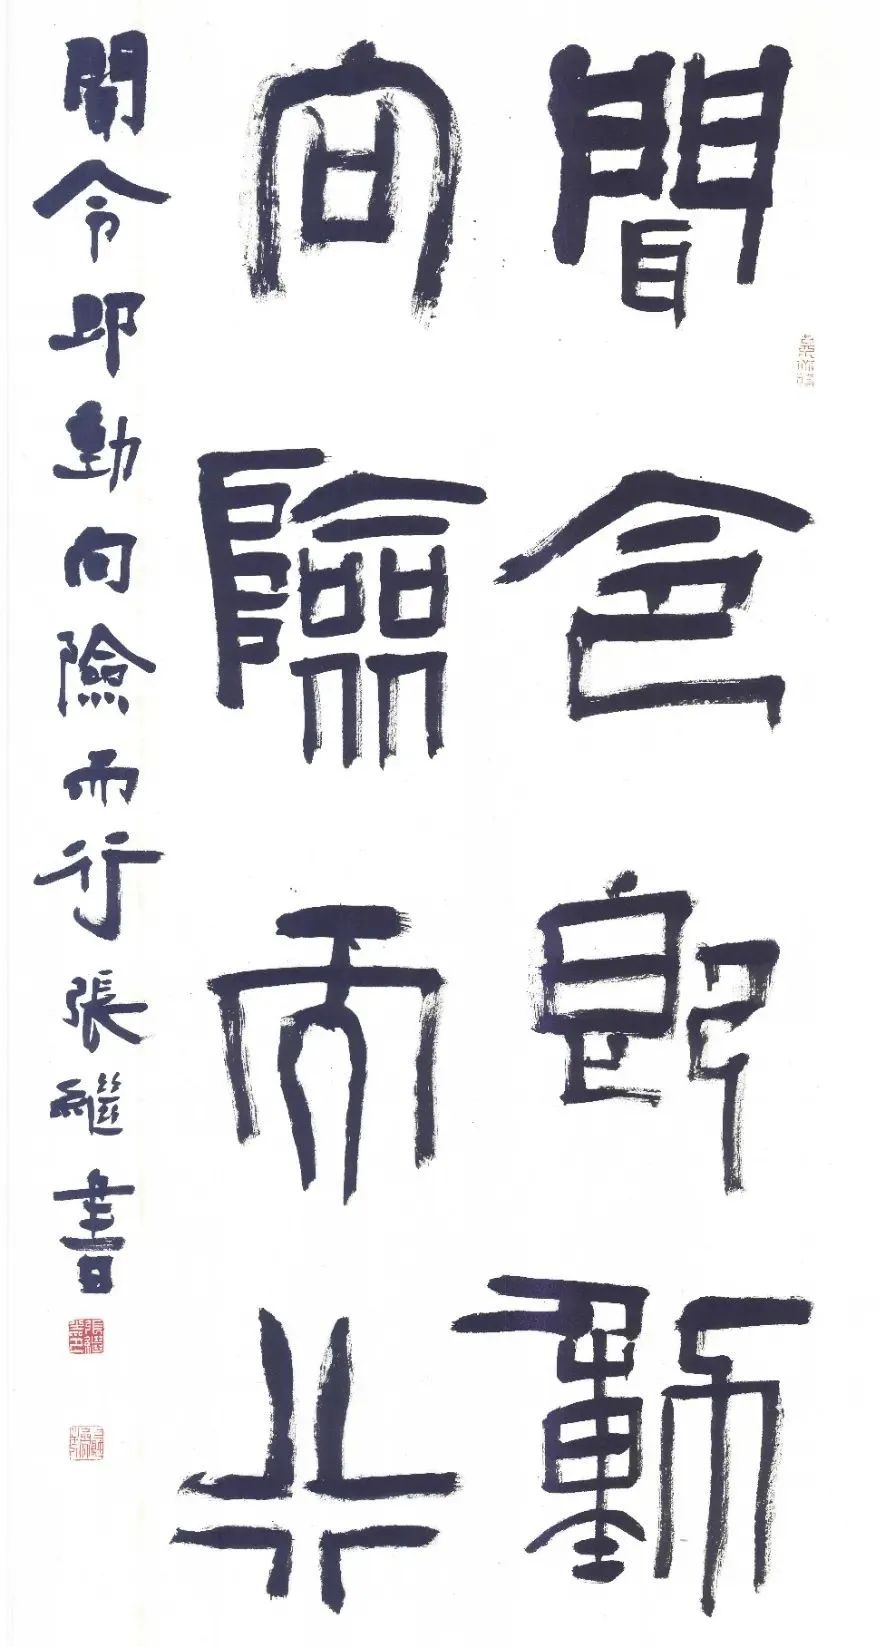 聞令即動
向險而行
聞令即動向險而行張繼書